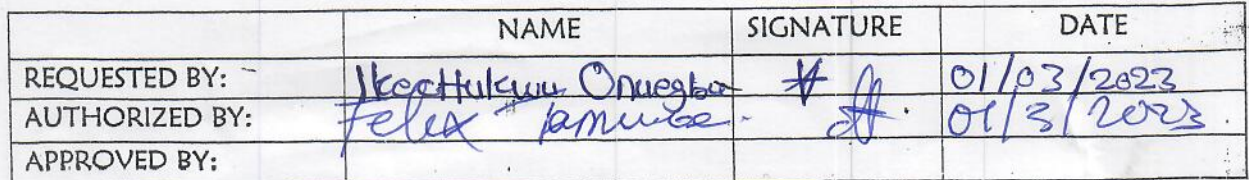 NAME SIGNATURE DATE
REQUESTED BY: Ikechukwu Onuegbu 01/03/2023
AUTHORIZED BY: Felix 01/3/2023.
APPROVED BY: